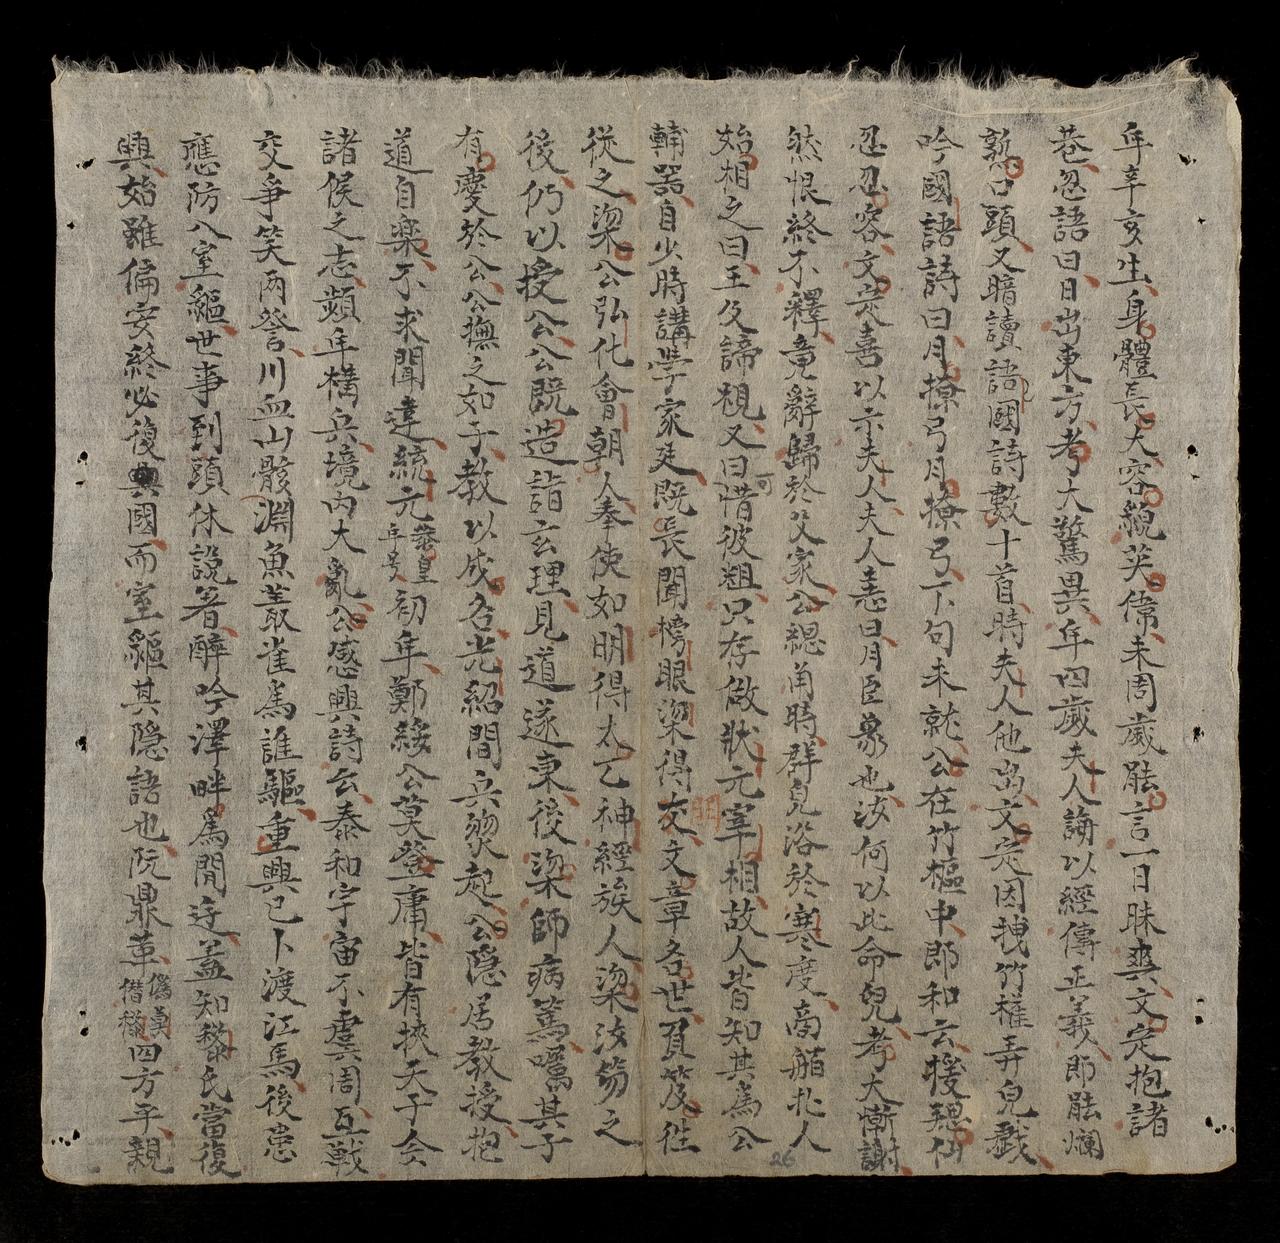 年辛亥生身體長大容貌英偉未周歲能言一日昧爽文定抱諸
巷忽語曰日出東方考大驚異年四歲夫人誨以經傳正義即能爛
熟口頭又暗讀語國詩數十首時夫人他出文定因拽竹權弄兒戲
吟國語詩曰月撩弓月撩弓下句未就公在竹樞中即和云援
忍忍容文定喜以示夫人夫人恚曰月臣象也汝何以此命兒考大慚謝
然恨終不釋竟辭歸於父家公總角時群兒浴於寒度商舶北人
始相之曰王及諦視又曰惜彼粗只存做狀元宰相故人皆知其爲公
輔器自少時講學家廷既長聞榜眼梁得友文章名世負笈徃
從之梁公弘化會朝人奉使如明得太乙神經族人梁汝笏之
後仍以授公公既造詣玄理見道遂東後梁師病篤囑其子
有慶於公公撫之如子教以成名光紹間兵起公隱居教授抱
道自楽不求聞達統元恭皇年号初年鄭綏公莫登庸皆有挾天子令
諸侯之志頻年構兵境内大亂公感興詩云泰和宇宙不虞周互戰
交爭笑兩川血山骸淵魚叢雀爲誰驅重興已卜渡江馬後患
應防入室貙世事到頭休說著醉吟澤畔爲閒遊蓋知黎氏當復
興始雖偏安終必復興國而室貙其隱語也阮鼎革僞莫僭稱四方平親
可
26